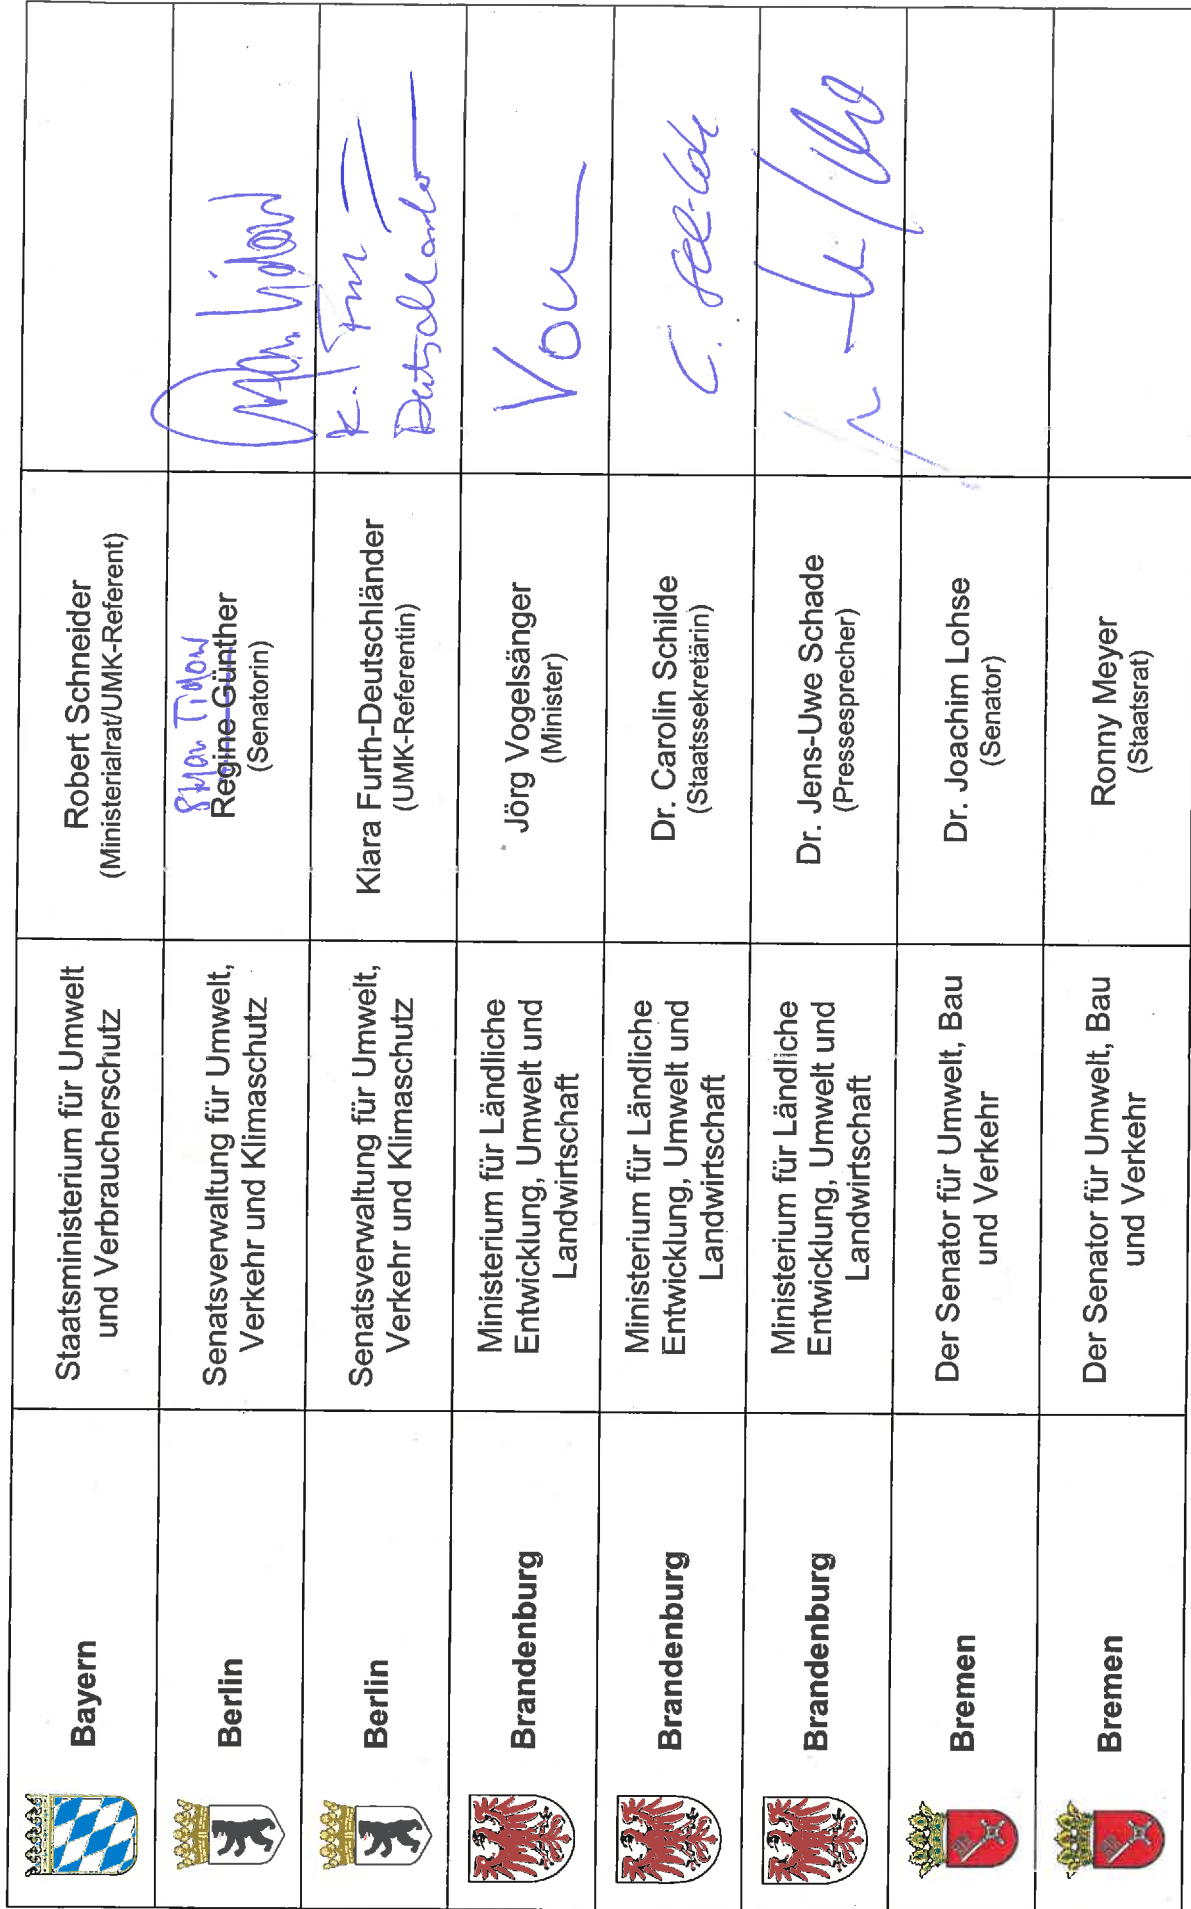 Bayern
Staatsministerium für Umwelt
und Verbraucherschutz
Robert Schneider
(Ministerialrat/UMK-Referent)
Berlin
Senatsverwaltung für Umwelt,
Verkehr und Klimaschutz
Tidow
Regine Günther
(Senatorin)
Berlin
Senatsverwaltung für Umwelt,
Verkehr und Klimaschutz
Klara Furth-Deutschländer
(UMK-Referentin)
K.
Deutschländer
Brandenburg
Ministerium für Ländliche
Entwicklung, Umwelt und
Landwirtschaft
Jörg Vogelsänger
(Minister)
Brandenburg
Ministerium für Ländliche
Entwicklung, Umwelt und
Landwirtschaft
Dr. Carolin Schilde
(Staatssekretärin)
C.
Brandenburg
Ministerium für Ländliche
Entwicklung, Umwelt und
Landwirtschaft
Dr. Jens-Uwe Schade
(Pressesprecher)
Bremen
Der Senator für Umwelt, Bau
und Verkehr
Dr. Joachim Lohse
(Senator)
Bremen
Der Senator für Umwelt, Bau
und Verkehr
Ronny Meyer
(Staatsrat)